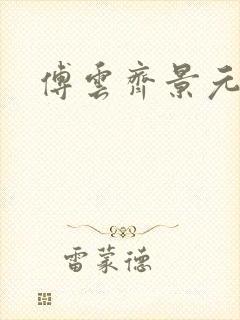 傅雲齊景元
雷蒙德